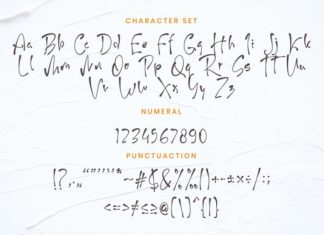 CHARACTER SET
Aa Bb Cc Dd Ee Ff Gg Hh Ii Jj Kk
Ll Mm Nn Oo Pp Qq Rr Ss Tt Uu
Vv Ww Xx Yy Zz
NUMERAL
1234567890
PUNCTUACTION
!?,.„“”‘’"'~#$&%‰()+-±×÷/:;
<=>≠≤≥@[\]^{|}